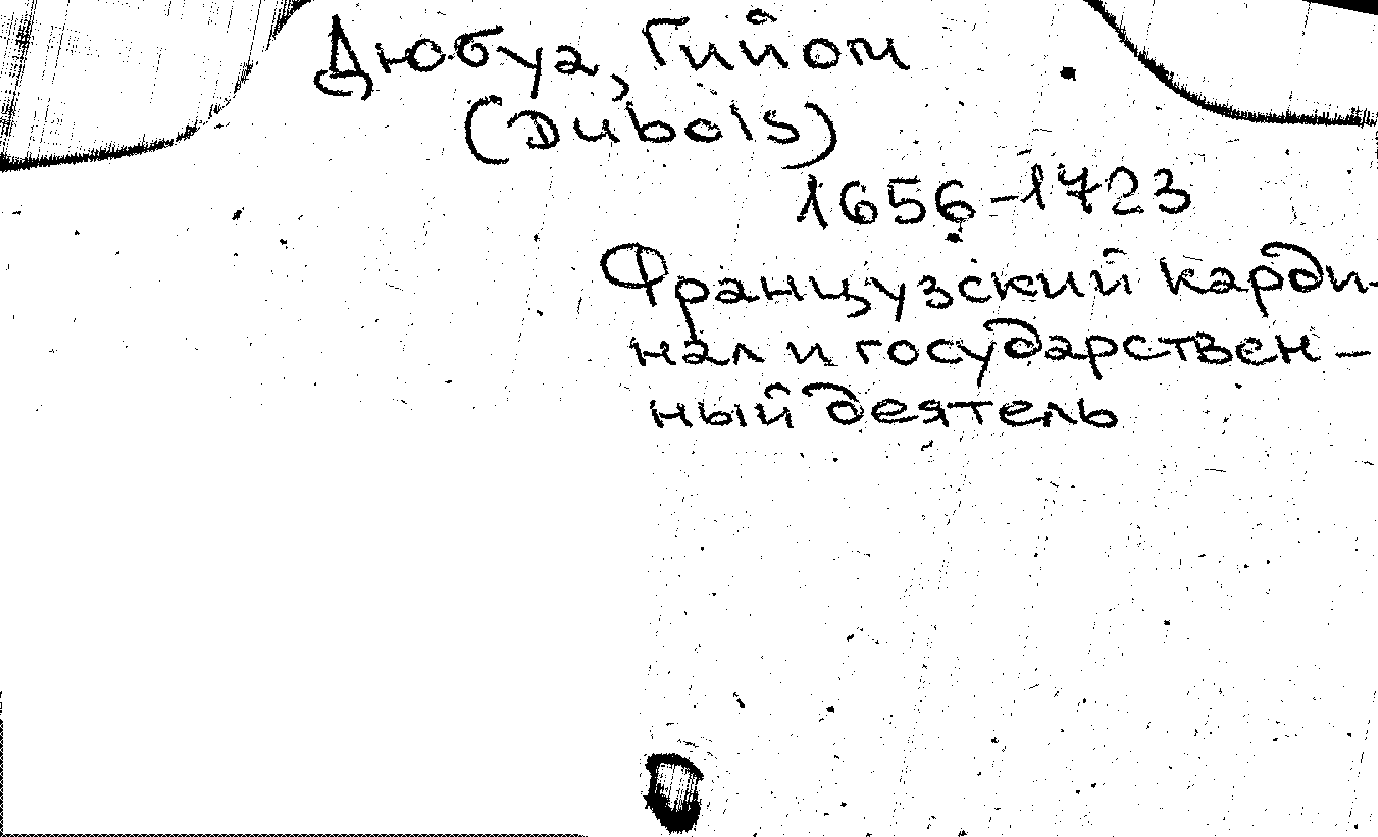 Дюбуа, Гийом
(Dubois)
1656-1723
Французский карди-
нал и государствен-
ный деятель